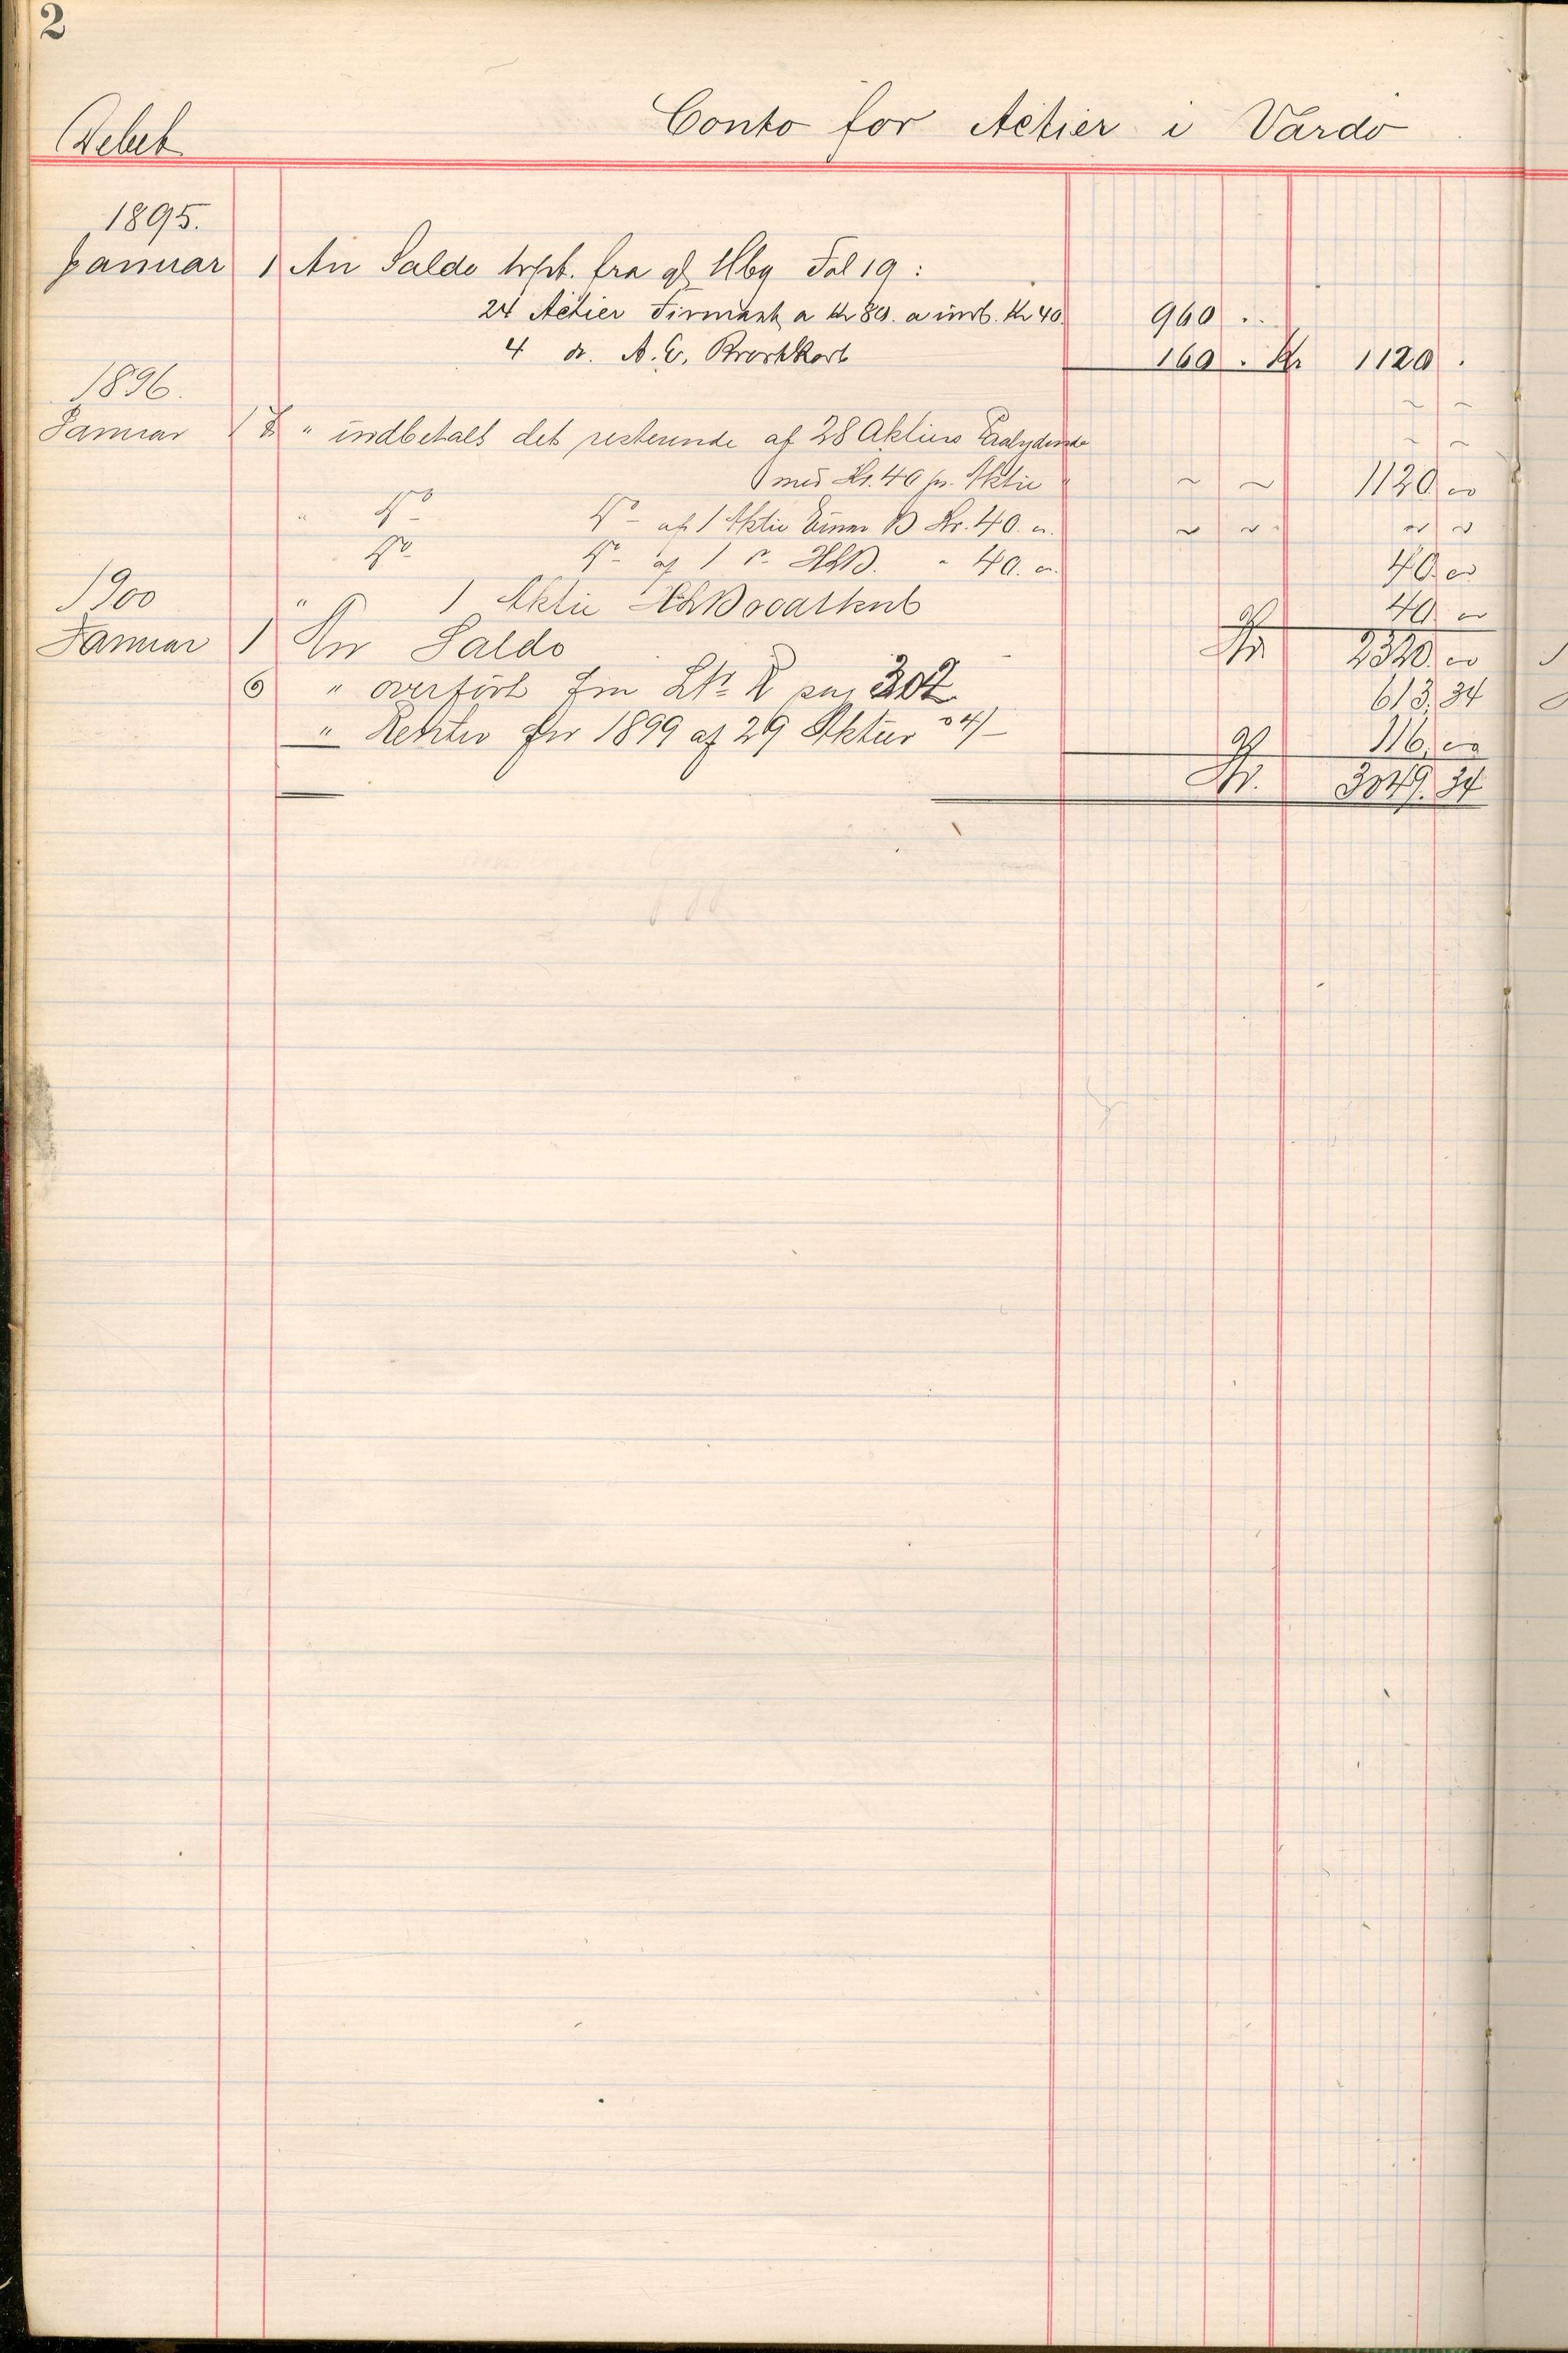 2
Debet
Conto for Actier i Vardö
1895.
Januar 1 An Saldo trpt. fra gl. Hbg Fol 19 :
24 Actier Firmaets a Kr 80. a indb. Kr 40. 960 . .
4 do. A. E. Brodtkorb 160 . Kr 1120 .
1896.
~ ~
Januar 17 " indbetalt det resterende af 28 Aktiers Paalydende ~ ~
med Kr. 40 pr. Aktie " ~ ~ 1120. 00
" Do Do af 1 Aktie Einar B Kr. 40. 00 ~ ~ ~ ~
Do Do af 1 do HLB. " 40. 00 40. 00
1900 " 1 Aktie HLBrodtkorb 40 00
Januar 1 An Saldo Kr. 2320. 00
6 " overfört fra pag 302 613. 34
" Renter for 1899 af 29 Aktier a 4/- 116. 00
Kr. 3049. 34